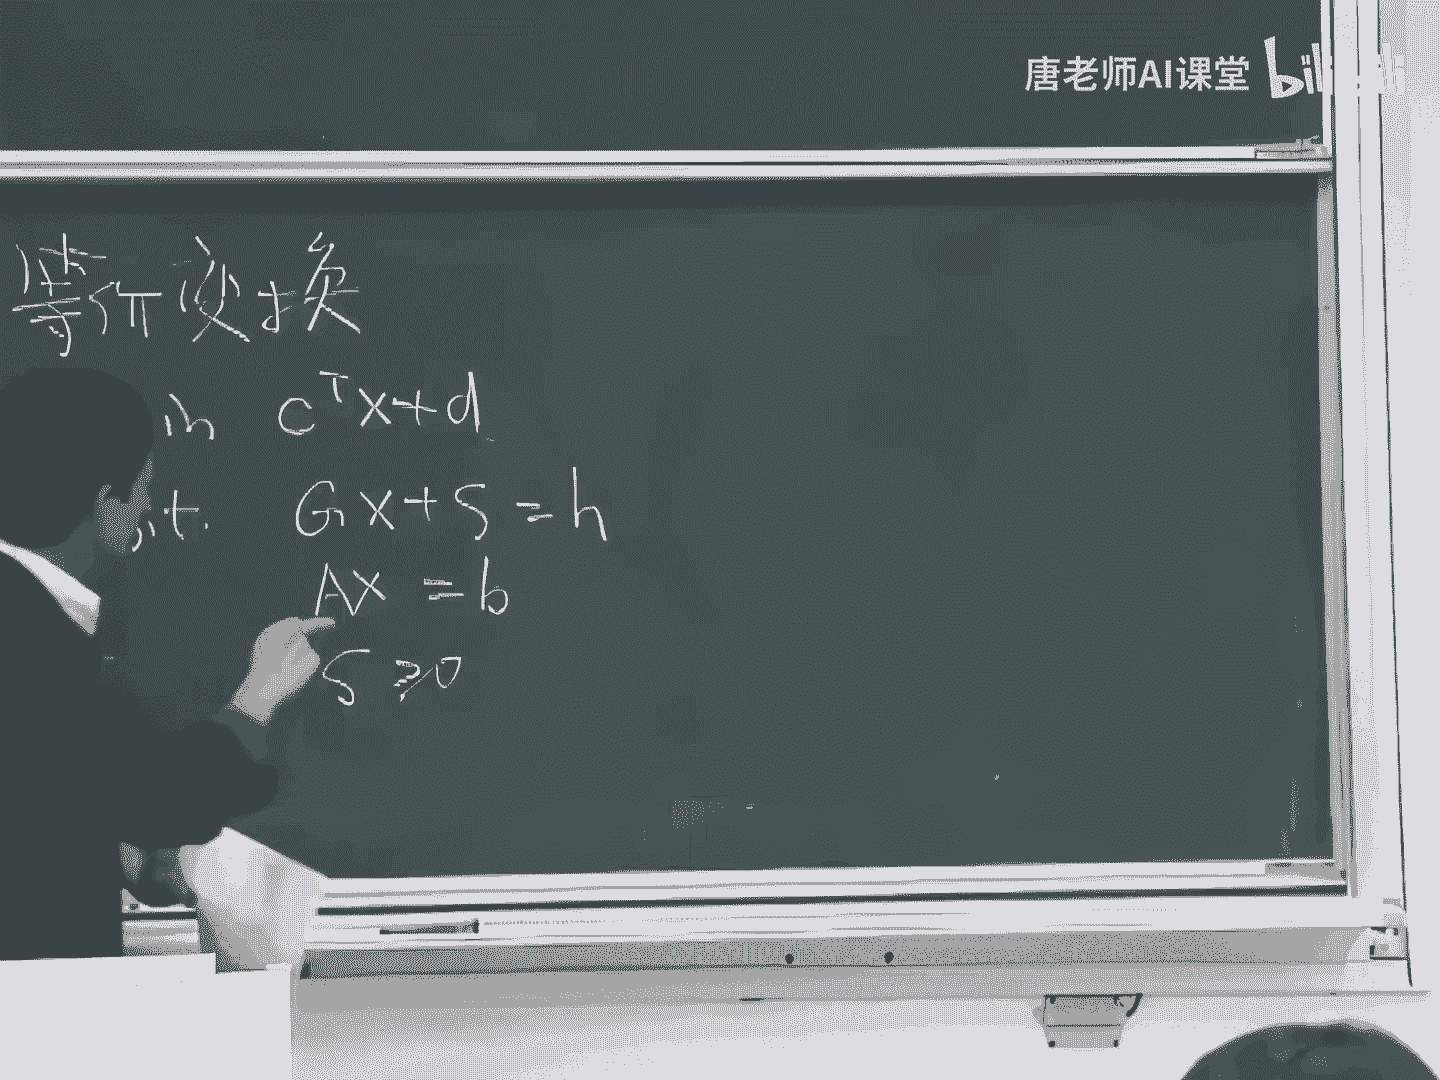 唐老师AI课堂 bilibili
等价变换
in cᵀx+d
s.t. Gx+s=h
Ax=b
s≥0